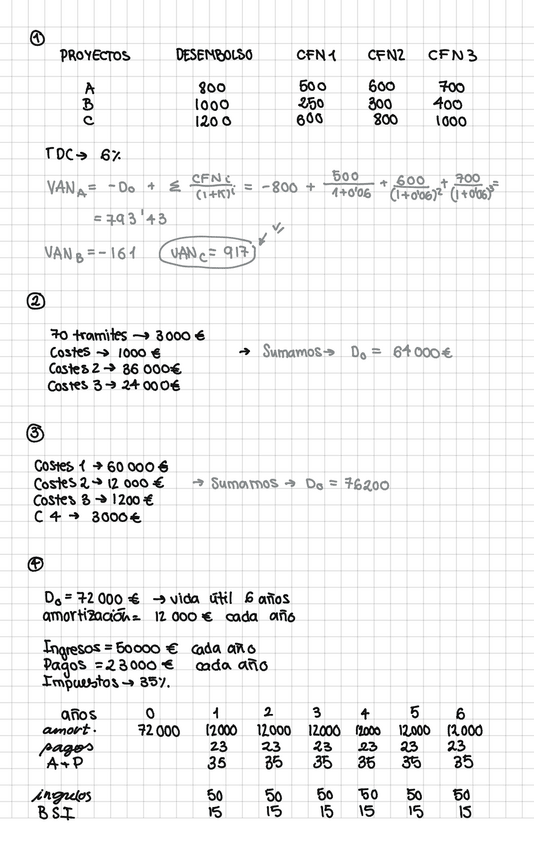 ①
PROYECTOS DESEMBOLSO CFN1 CFN2 CFN3
A 800 500 600 700
B 1000 250 300 400
C 1200 600 800 1000
TDC → 6%
VAN_A = -D₀ + Σ CFNi/(1+K)^i = -800 + 500/1+0'06 + 600/(1+0'06)² + 700/(1+0'06)³ =
= 793'43
VAN_B = -161 VAN_C = 917
②
70 tramites → 3000 €
Costes → 1000 € → Sumamos → D₀ = 64000 €
Costes 2 → 36 000 €
Costes 3 → 24 000 €
③
Costes 1 → 60 000 €
Costes 2 → 12 000 € → Sumamos → D₀ = 76200
Costes 3 → 1200 €
C 4 → 3000 €
④
D₀ = 72 000 € → vida útil 6 años
amortización = 12 000 € cada año
Ingresos = 50000 € cada año
Pagos = 23000 € cada año
Impuestos → 35%.
años 0 1 2 3 4 5 6
amort. 72 000 12000 12.000 12000 12000 12.000 12.000
pagos 23 23 23 23 23 23
A+P 35 35 35 35 35 35
ingulos 50 50 50 50 50 50
B.S.I 15 15 15 15 15 15